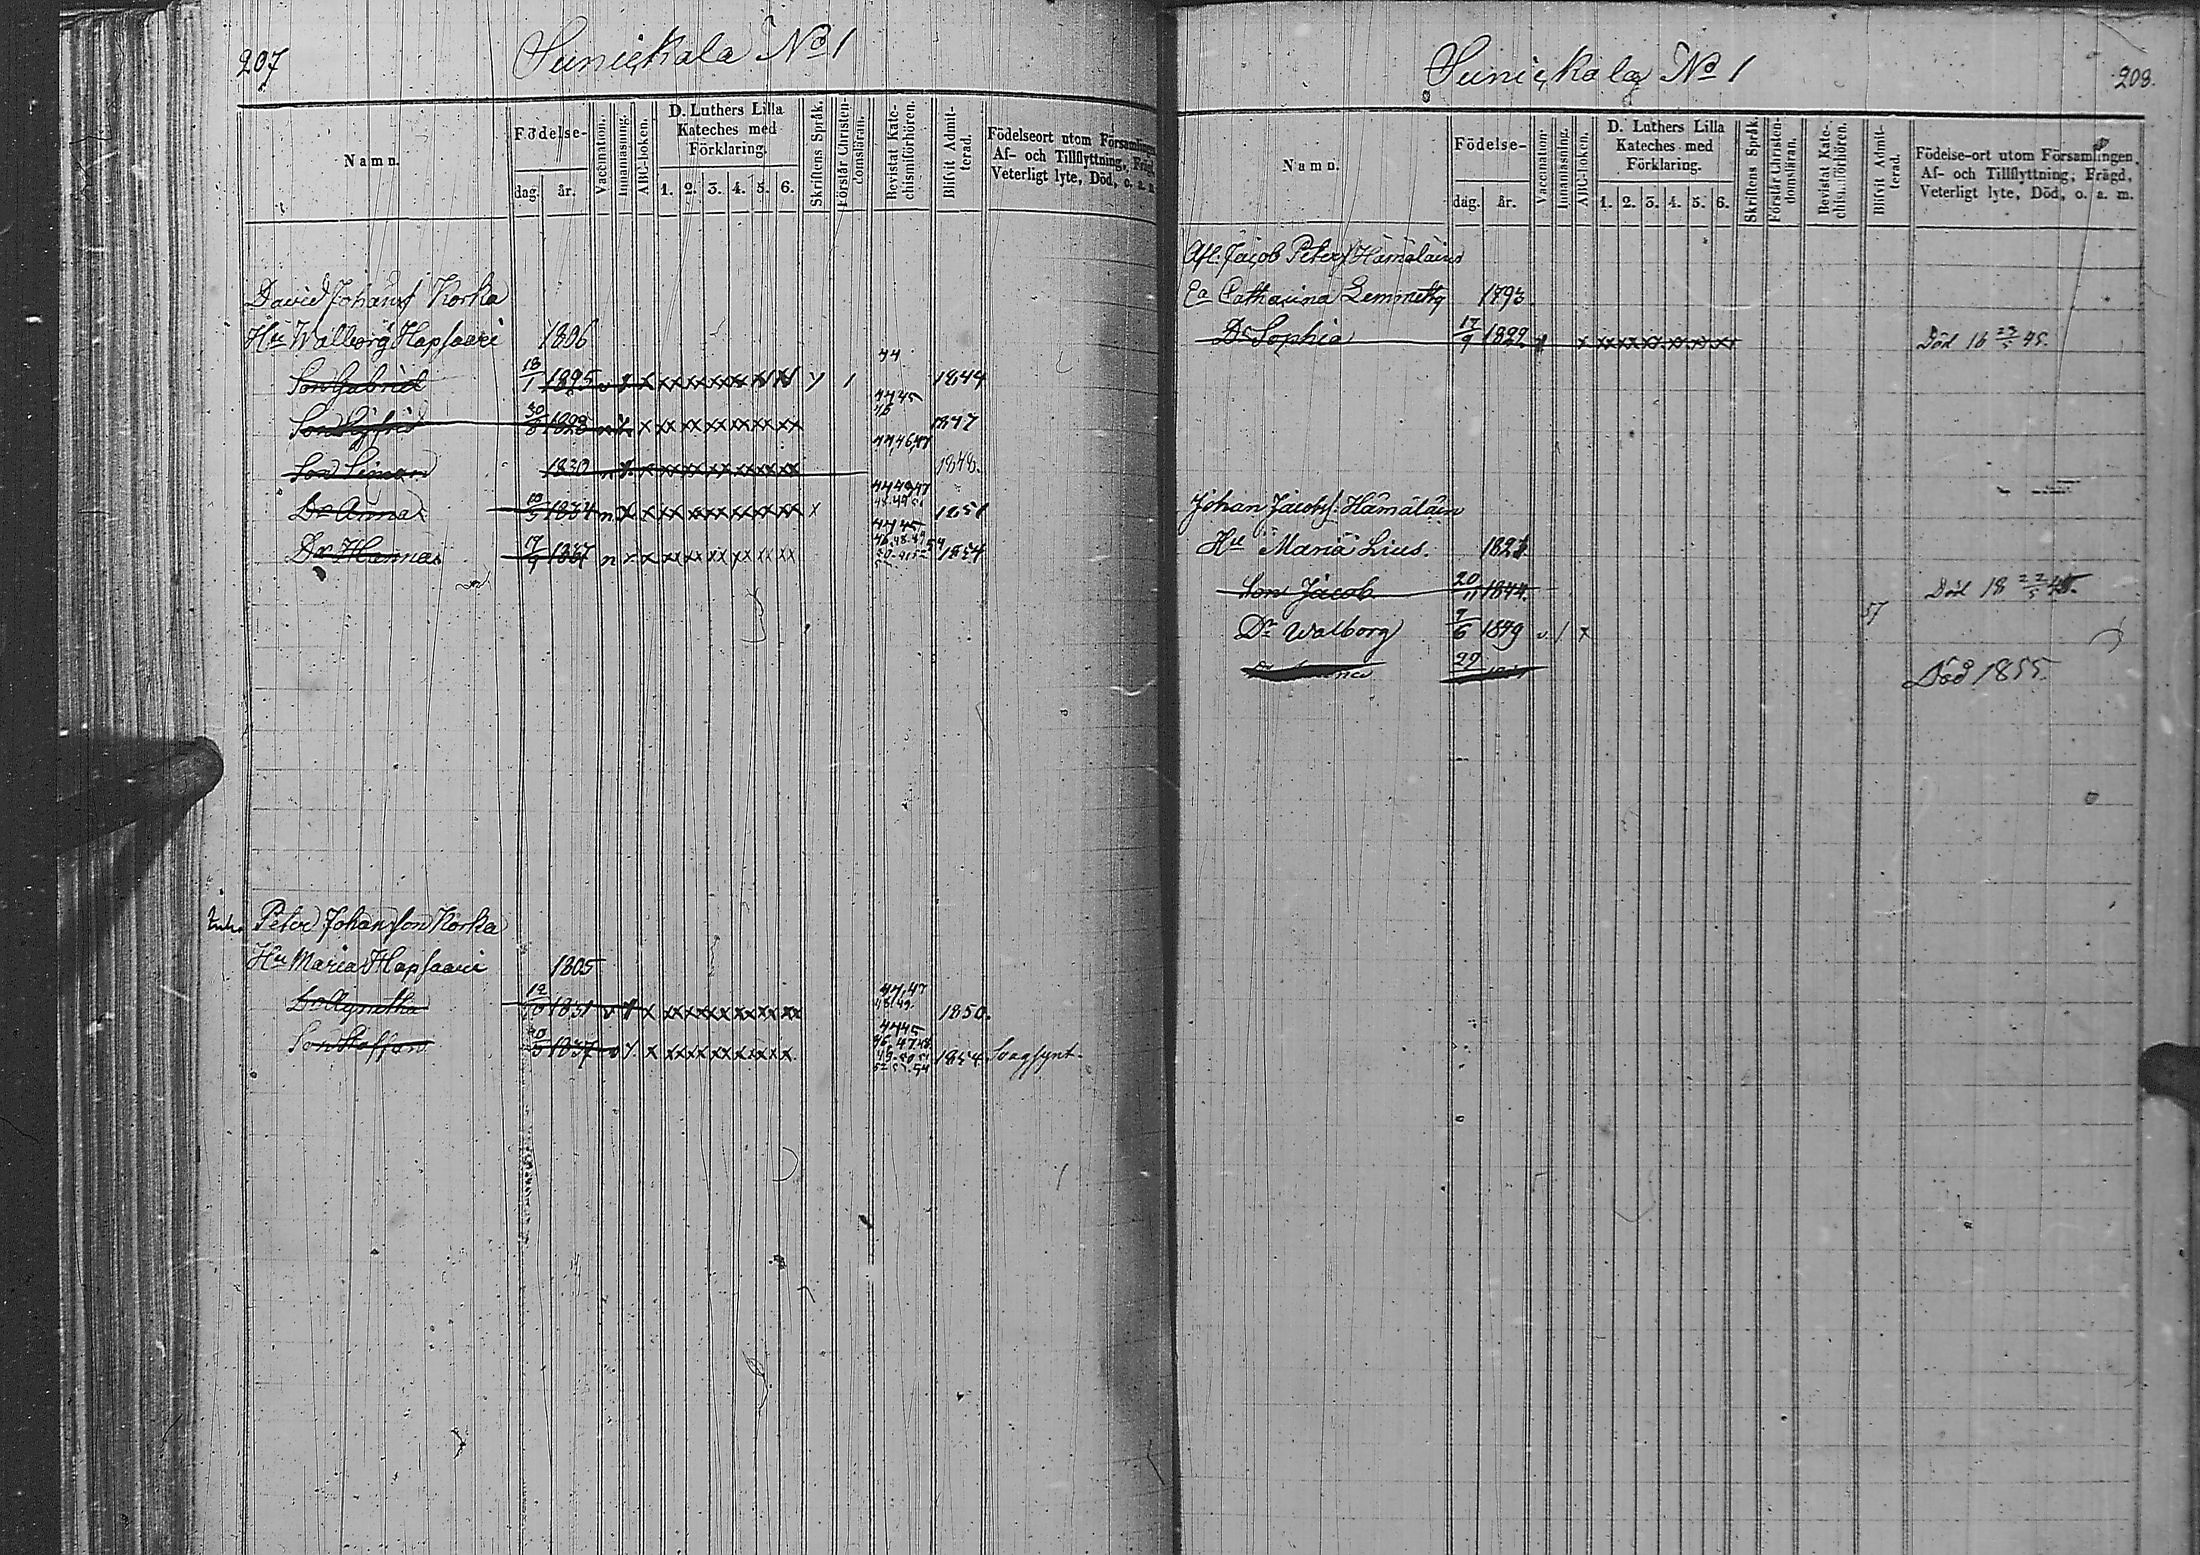 207
Sunickala No 1
Namn.
Födelse-
dag. år.
Vaccination.
Innanläsning.
ABC-boken.
D. Luthers Lilla
Kateches med
Förklaring.
1. 2. 3. 4. 5. 6.
Skriftens Språk.
Förstår Christen-
domsläran.
Bevistat Kate-
chismiförhören.
Blifvit Admit-
terad.
Födelseort utom Församlingen
Af- och Tillflyttning, Frägd,
Veterligt lyte, Död, o. a. m.
David Johans Korka
Hu Walborg Hapsaari 1806
Son Gabriel 18/1 1825 44 1844
Son Sigfrid 1828 1847
Son Simon 1830 1848.
Dr Anna 1834 1851
Dr Hanna 17/9 1837 1854
Peter Johansson Korka
Hu Maria Hapsaari 1805
Dr Agnetha 12/10 1831 1850.
Son Staffan 1837 1854 Svagsynt.
Sunickala No 1
208.
Namn.
Födelse-
dag. år.
Vaccination.
Innanläsning.
ABC-boken.
D. Luthers Lilla
Kateches med
Förklaring.
1. 2. 3. 4. 5. 6.
Skriftens Språk.
Förstår Christen-
domsläran.
Bevistat Kate-
chismiförhören.
Blifvit Admit-
terad.
Födelse-ort utom Församlingen
Af- och Tillflyttning, Frägd,
Veterligt lyte, Död, o. a. m.
Afl. Jacob Peters Hämäläin
Ea Catharina Lemmetty 1793
Dr Sophia 17/9 1829 Död 18 23/5 45.
Johan Jacobs. Hämäläin
Hu Maria Lius.
Son Jacob 20/11 1844. Död 18 22/5 45.
Dr Walborg 7/6 1849 57
29 Död 1855.